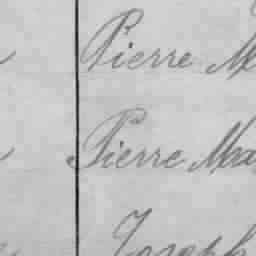 Pierre M
Pierre Ma
Joseph